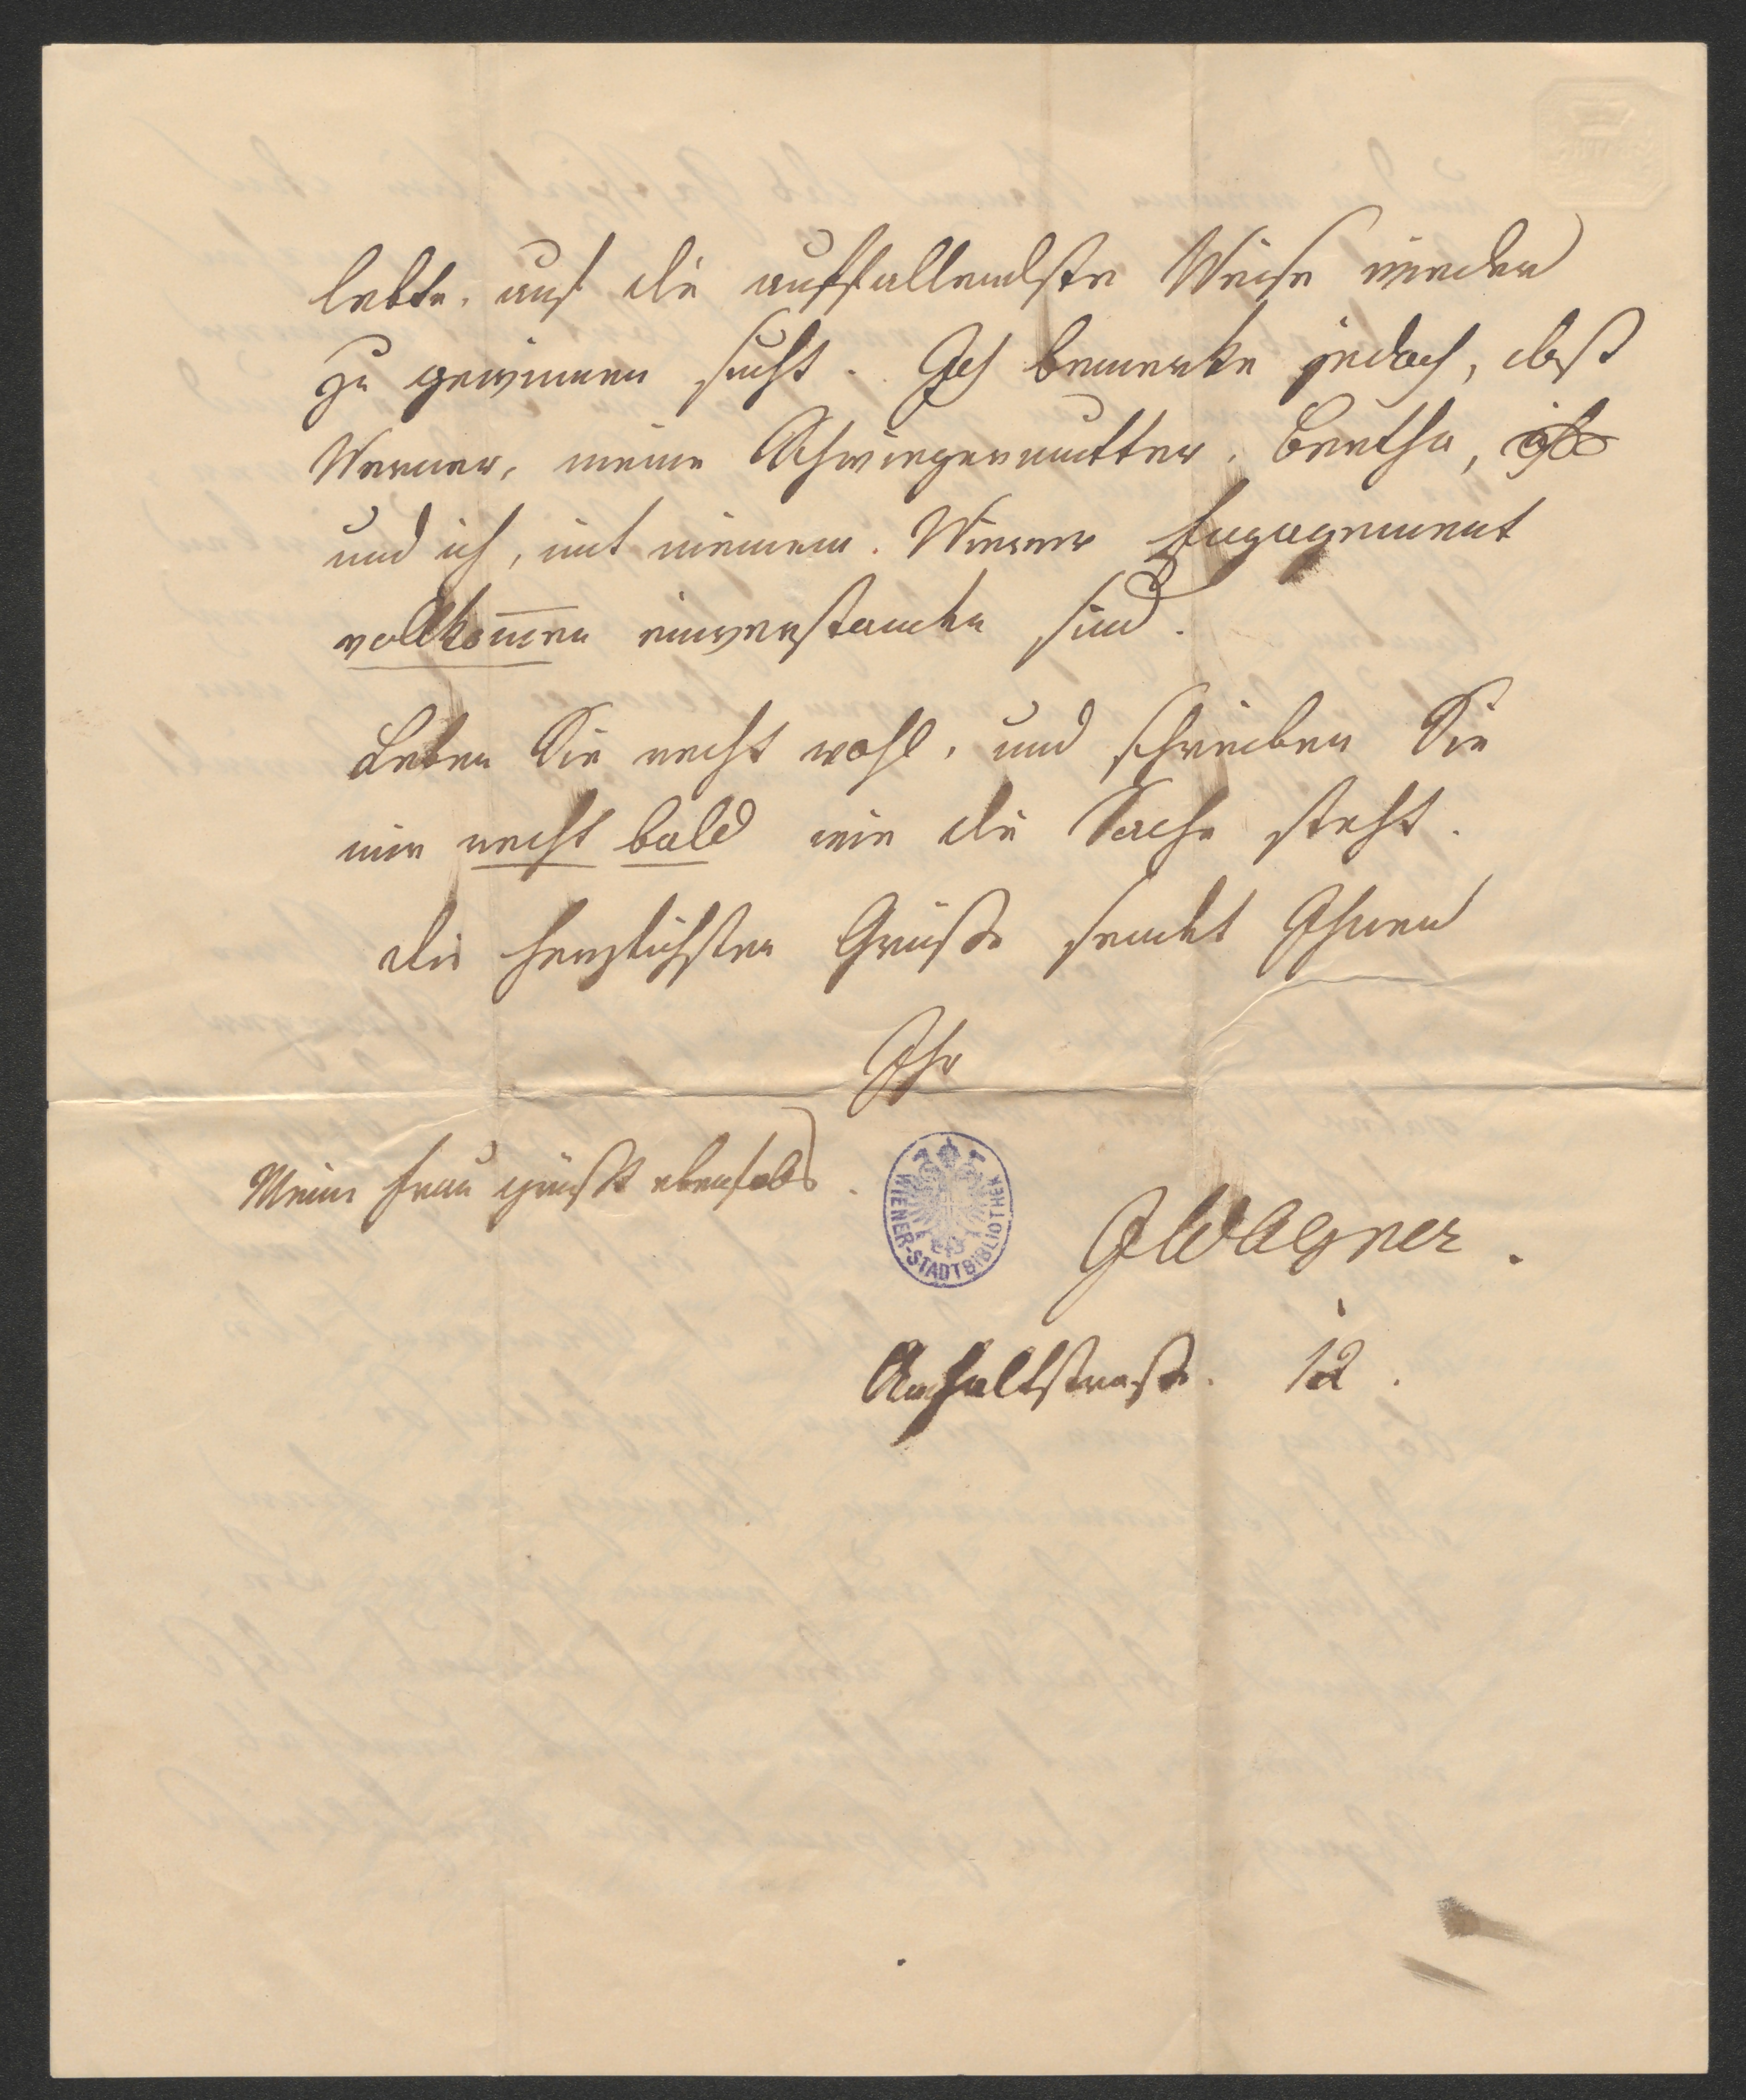 lebte, auf die auffallendste Weise wieder
zu gewinnen sucht. Ich bemerke jedoch, daß
Werner, meine Schwiegermutter, Bertha,
und ich, mit meinem Wiener Engagement
vollkom̅en einverstanden sind.
Leben Sie recht wohl, und schreiben Sie
mir recht bald wie die Sache steht.
Die herzlichsten Grüße sendet Ihnen
Ihr
Meine Frau grüßt ebenfals.
WIENER-STADTBIBLIOTHEK
JWagner.
Anhaltstraße. 12.